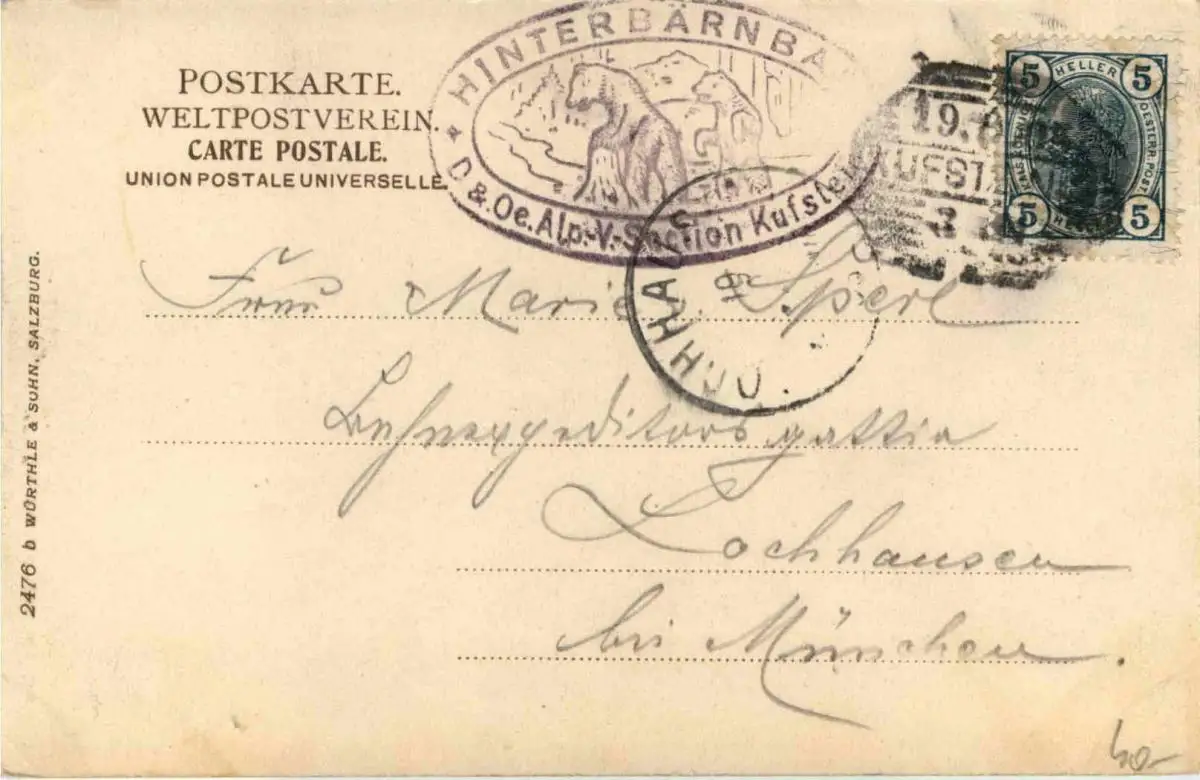 POSTKARTE.
WELTPOSTVEREIN.
CARTE POSTALE.
UNION POSTALE UNIVERSELLE.
HINTERBÄRNBA
D. & Oe. Alp.-V.-Section Kufstein
19. 8
KUFST
3
5 HELLER 5
5 5
Frau Marie Sperl
Bahnexpeditors gattin
Lochhausen
bei München.
2476 b WÜRTHLE & SOHN, SALZBURG.